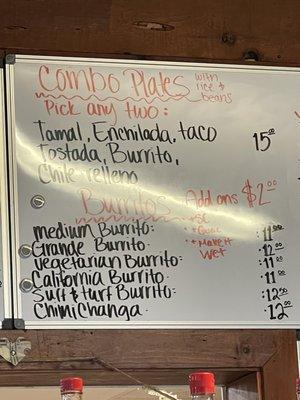 Combo Plates with rice & beans
Pick any two:
Tamal, Enchilada, taco 15.00
Tostada, Burrito,
Chile relleno
Burritos Add ons $2.00
+SC
+Guac
+Make it
Wet
medium Burrito: :11.00
Grande Burrito: :12.00
vegetarian Burrito: :11.00
California Burrito: :11.00
Surf & turf Burrito: :12.50
Chimichanga: :12.00